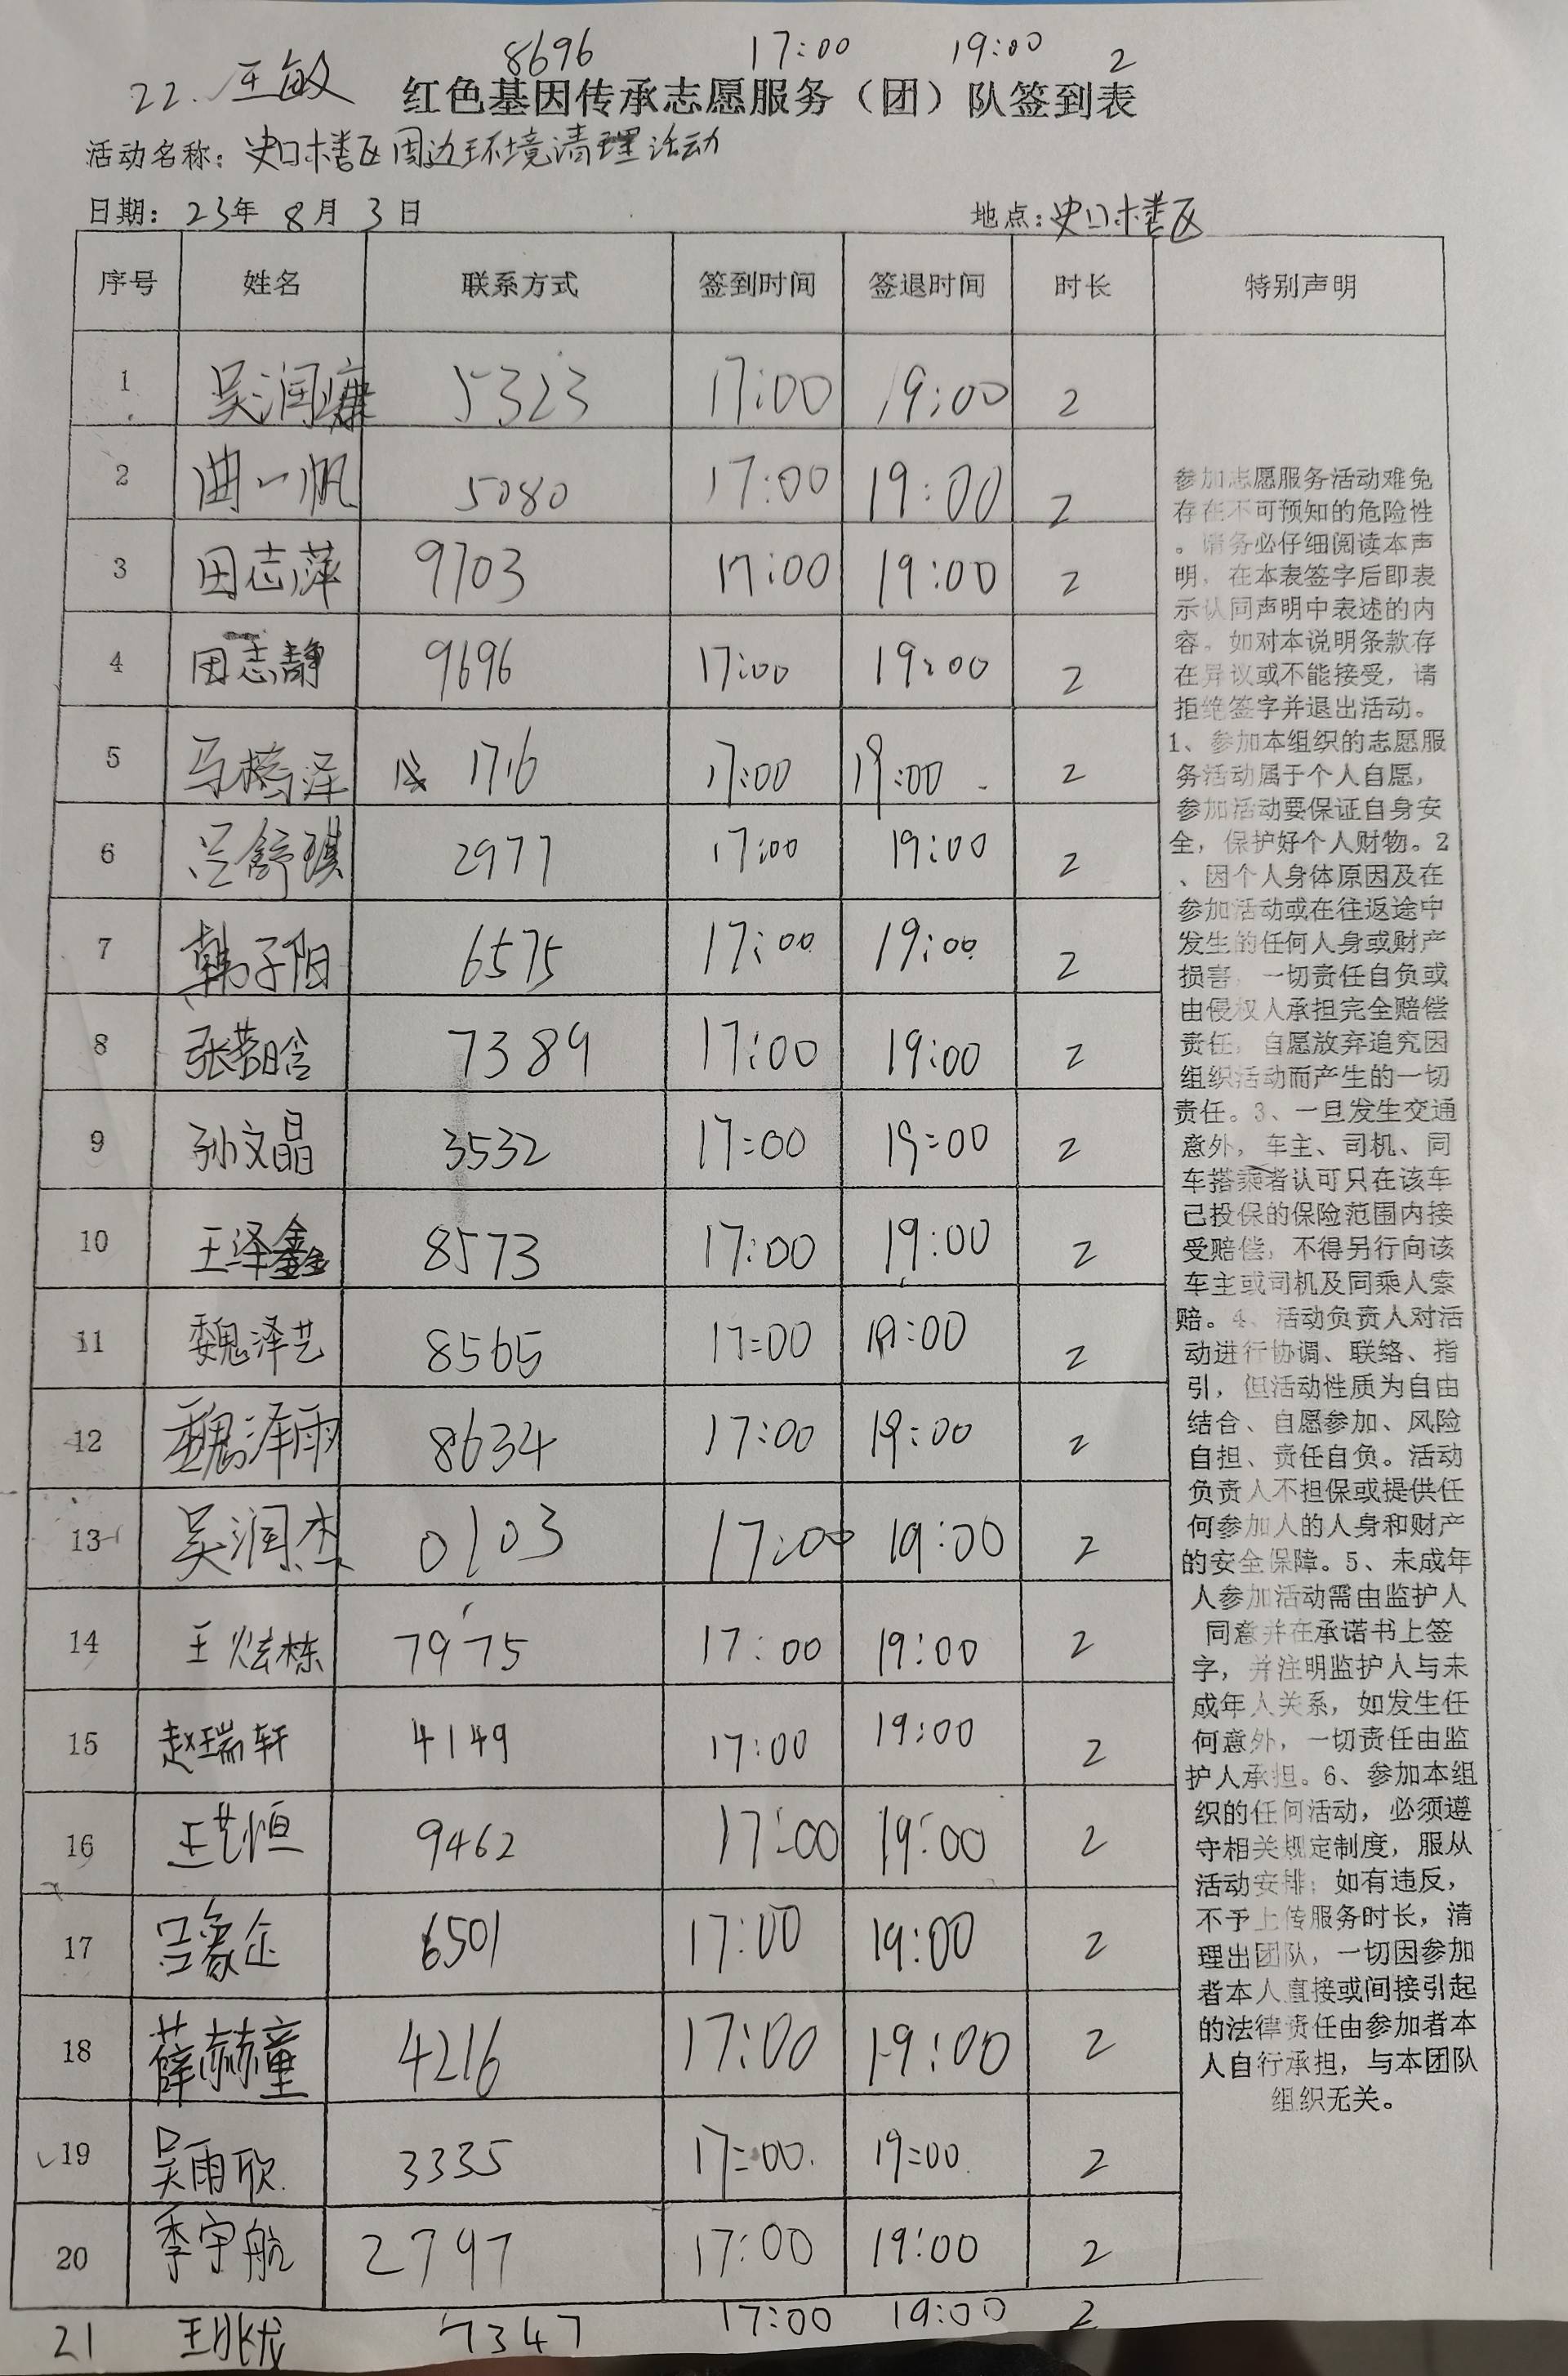 22. 王敏 8696 17:00 19:00 2
红色基因传承志愿服务（团）队签到表
活动名称：史口楼区周边环境清理活动
日期：23年 8月 3日 地点：史口楼区
序号 姓名 联系方式 签到时间 签退时间 时长 特别声明
1 吴润 5323 17:00 19:00 2
2 曲一帆 5080 17:00 19:00 2
3 田志萍 9703 17:00 19:00 2
4 田志静 9696 17:00 19:00 2
5 马 泽 1716 17:00 19:00 2
6 吕舒琪 2977 17:00 19:00 2
7 韩子阳 6575 17:00 19:00 2
8 张若晗 7389 17:00 19:00 2
9 孙文晶 3532 17:00 19:00 2
10 王泽鑫 8573 17:00 19:00 2
11 魏泽艺 8565 17:00 19:00 2
12 魏泽雨 8634 17:00 19:00 2
13 吴润杰 0103 17:00 19:00 2
14 王炫栋 7975 17:00 19:00 2
15 赵瑞轩 4149 17:00 19:00 2
16 王艺恒 9462 17:00 19:00 2
17 吕象企 6501 17:00 19:00 2
18 薛赫童 4216 17:00 19:00 2
19 吴雨欣 3335 17:00 19:00 2
20 季宇航 2797 17:00 19:00 2
21 王兆龙 7347 17:00 19:00 2
参加志愿服务活动难免
存在不可预知的危险性
。请务必仔细阅读本声
明，在本表签字后即表
示认同声明中表述的内
容。如对本说明条款存
在异议或不能接受，请
拒绝签字并退出活动。
1、参加本组织的志愿服
务活动属于个人自愿，
参加活动要保证自身安
全，保护好个人财物。2
、因个人身体原因及在
参加活动或在往返途中
发生的任何人身或财产
损害，一切责任自负或
由侵权人承担完全赔偿
责任，自愿放弃追究因
组织活动而产生的一切
责任。3、一旦发生交通
意外，车主、司机、同
车搭乘者认可只在该车
已投保的保险范围内接
受赔偿，不得另行向该
车主或司机及同乘人索
赔。4、活动负责人对活
动进行协调、联络、指
引，但活动性质为自由
结合、自愿参加、风险
自担、责任自负。活动
负责人不担保或提供任
何参加人的人身和财产
的安全保障。5、未成年
人参加活动需由监护人
同意并在承诺书上签
字，并注明监护人与未
成年人关系，如发生任
何意外，一切责任由监
护人承担。6、参加本组
织的任何活动，必须遵
守相关规定制度，服从
活动安排；如有违反，
不予上传服务时长，清
理出团队，一切因参加
者本人直接或间接引起
的法律责任由参加者本
人自行承担，与本团队
组织无关。